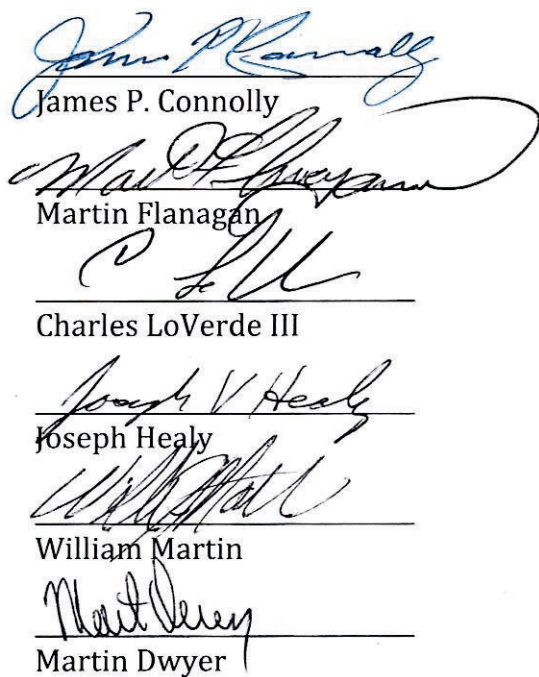 James P. Connolly
James P. Connolly
Martin Flanagan
Charles LoVerde III
Joseph V Healy
Joseph Healy
William Martin
Martin Dwyer